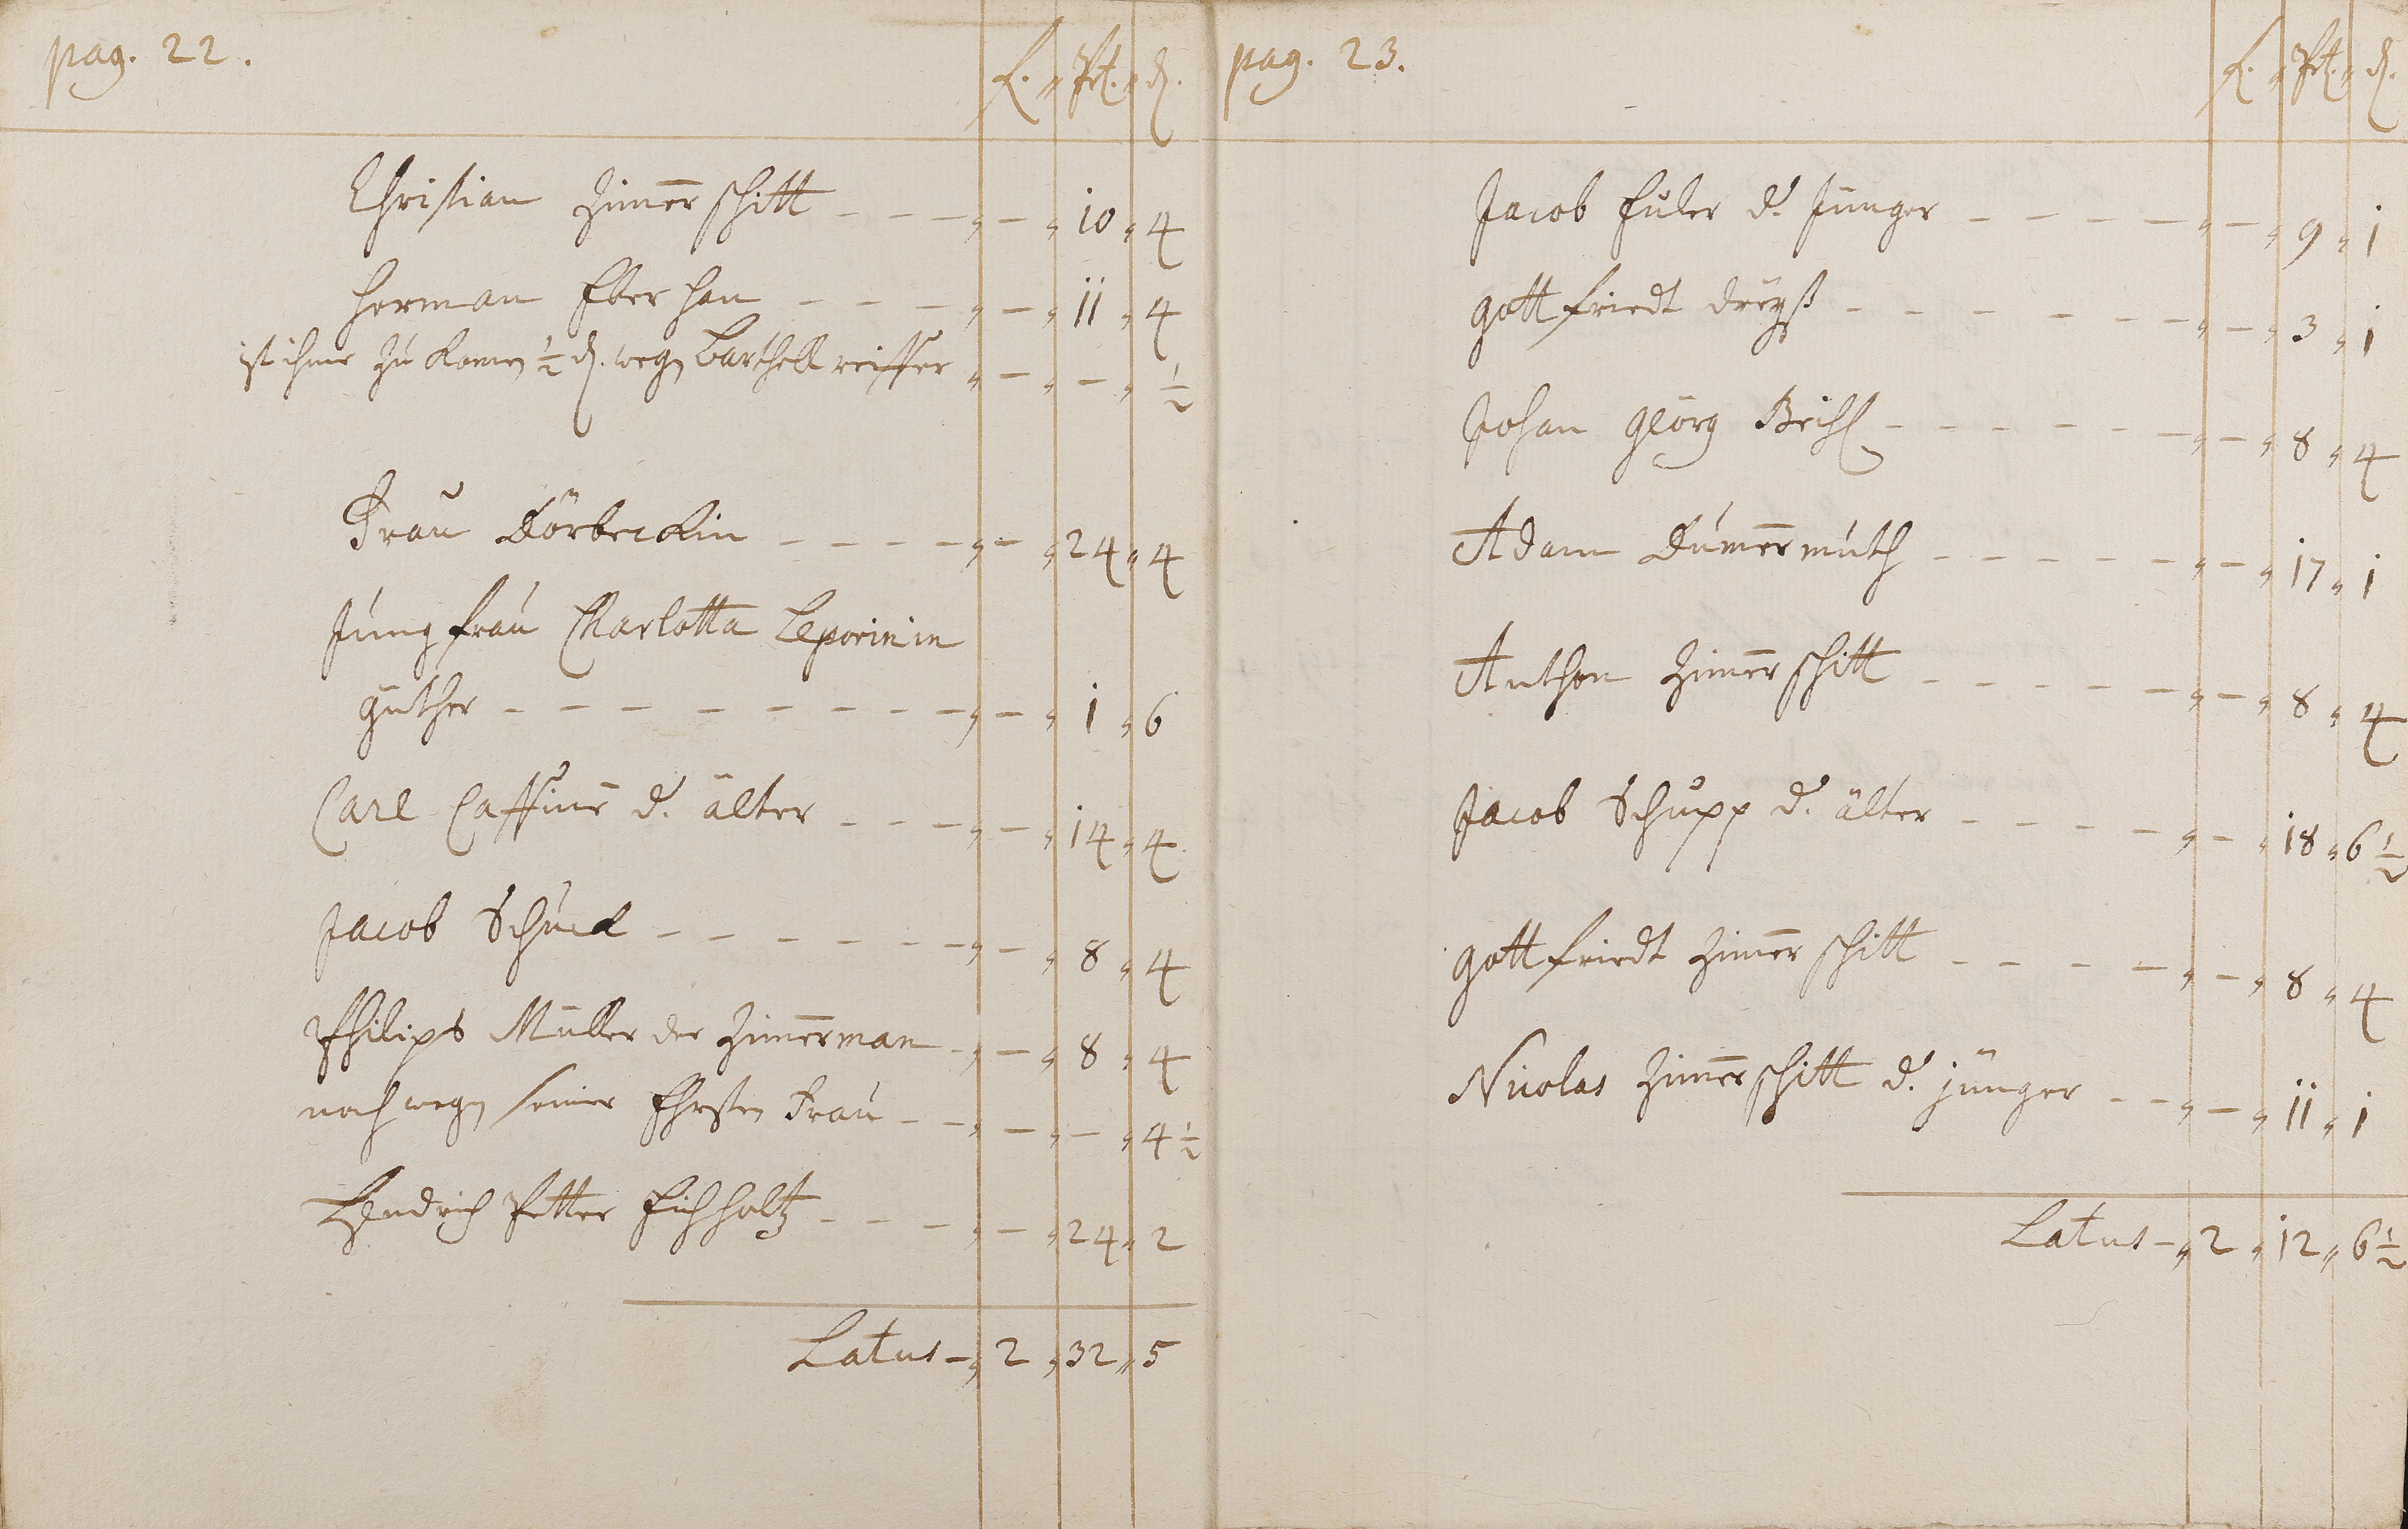 pag. 22.
f. " Pet. " d.
Christian Zimerschitt - - - " - " 10 " 4
Herman Eberhan - - - " - " 11 " 4
ist ihme zu komen ½ d. wegen Barthell reisser " - " - " ½
Frau Dörbeckin - - - - " - " 24 " 4
Jungfrau Charlotta Leporinin
güther - - - - - - - - " - " 1 " 6
Carl Cassine d. älter - - - " - " 14 " 4
Jacob Schuck - - - - - - " - " 8 " 4
Philips Müller der Zimerman - " - " 8 " 4
noch wegen seiner Ehrsten Frau - - " - " - " 4 ½
Hendrich Petter Eichholtz - - - " - " 24 " 2
Latus - " 2 " 32 " 5
pag. 23.
f. " Pet. " d.
Jacob Euler d. Junger - - - - - " - " 9 " 1
Gottfriedt - - - - - - - " - " 3 " 1
Johan Georg Briehl - - - - - - " - " 8 " 4
Adam Dümermuth - - - - - " - " 17 " 1
Anthon Zimerschitt - - - - - " - " 8 " 4
Jacob Schupp d. älter - - - - " - " 18 " 6 ½
Gottfriedt Zimerschitt - - - - " - " 8 " 4
Nicolas Zimerschitt d. jünger - - " - " 11 " 1
Latus - " 2 " 12 " 6 ½